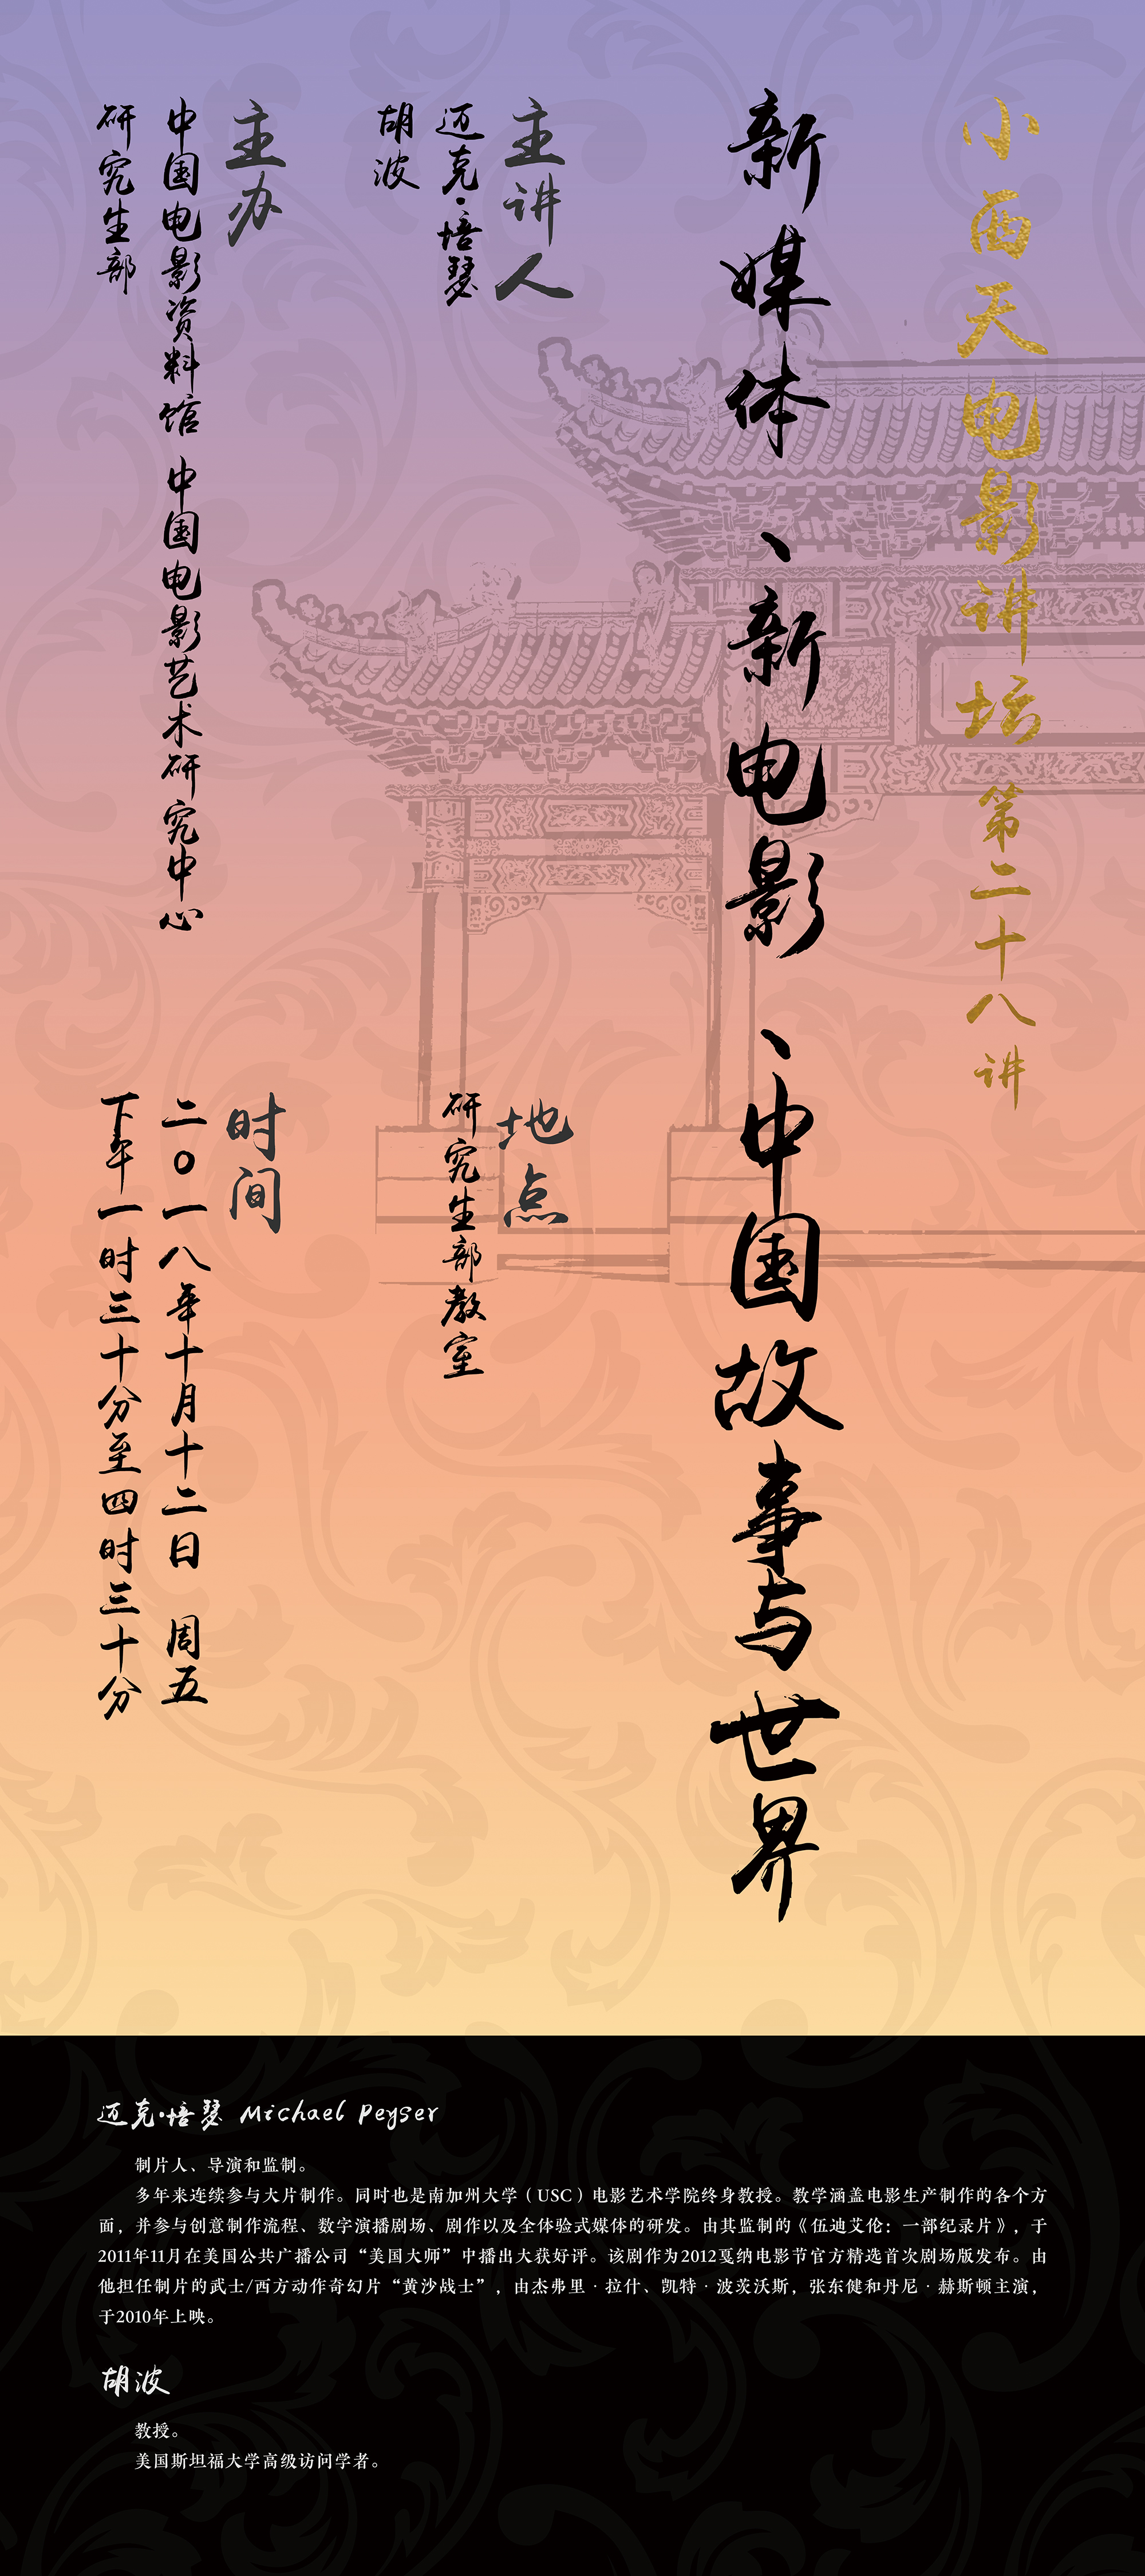 小西天电影讲坛 第二十八讲
新媒体、新电影、中国故事与世界
主讲人
迈克·培瑟
胡波
地点
研究生部教室
主办
中国电影资料馆 中国电影艺术研究中心
研究生部
时间
二〇一八年十月十二日 周五
下午一时三十分至四时三十分
迈克·培瑟 Michael Peyser
制片人、导演和监制。
多年来连续参与大片制作。同时也是南加州大学（USC）电影艺术学院终身教授。教学涵盖电影生产制作的各个方
面，并参与创意制作流程、数字演播剧场、剧作以及全体验式媒体的研发。由其监制的《伍迪艾伦：一部纪录片》，于
2011年11月在美国公共广播公司“美国大师”中播出大获好评。该剧作为2012戛纳电影节官方精选首次剧场版发布。由
他担任制片的武士/西方动作奇幻片“黄沙战士”，由杰弗里·拉什、凯特·波茨沃斯，张东健和丹尼·赫斯顿主演，
于2010年上映。
胡波
教授。
美国斯坦福大学高级访问学者。